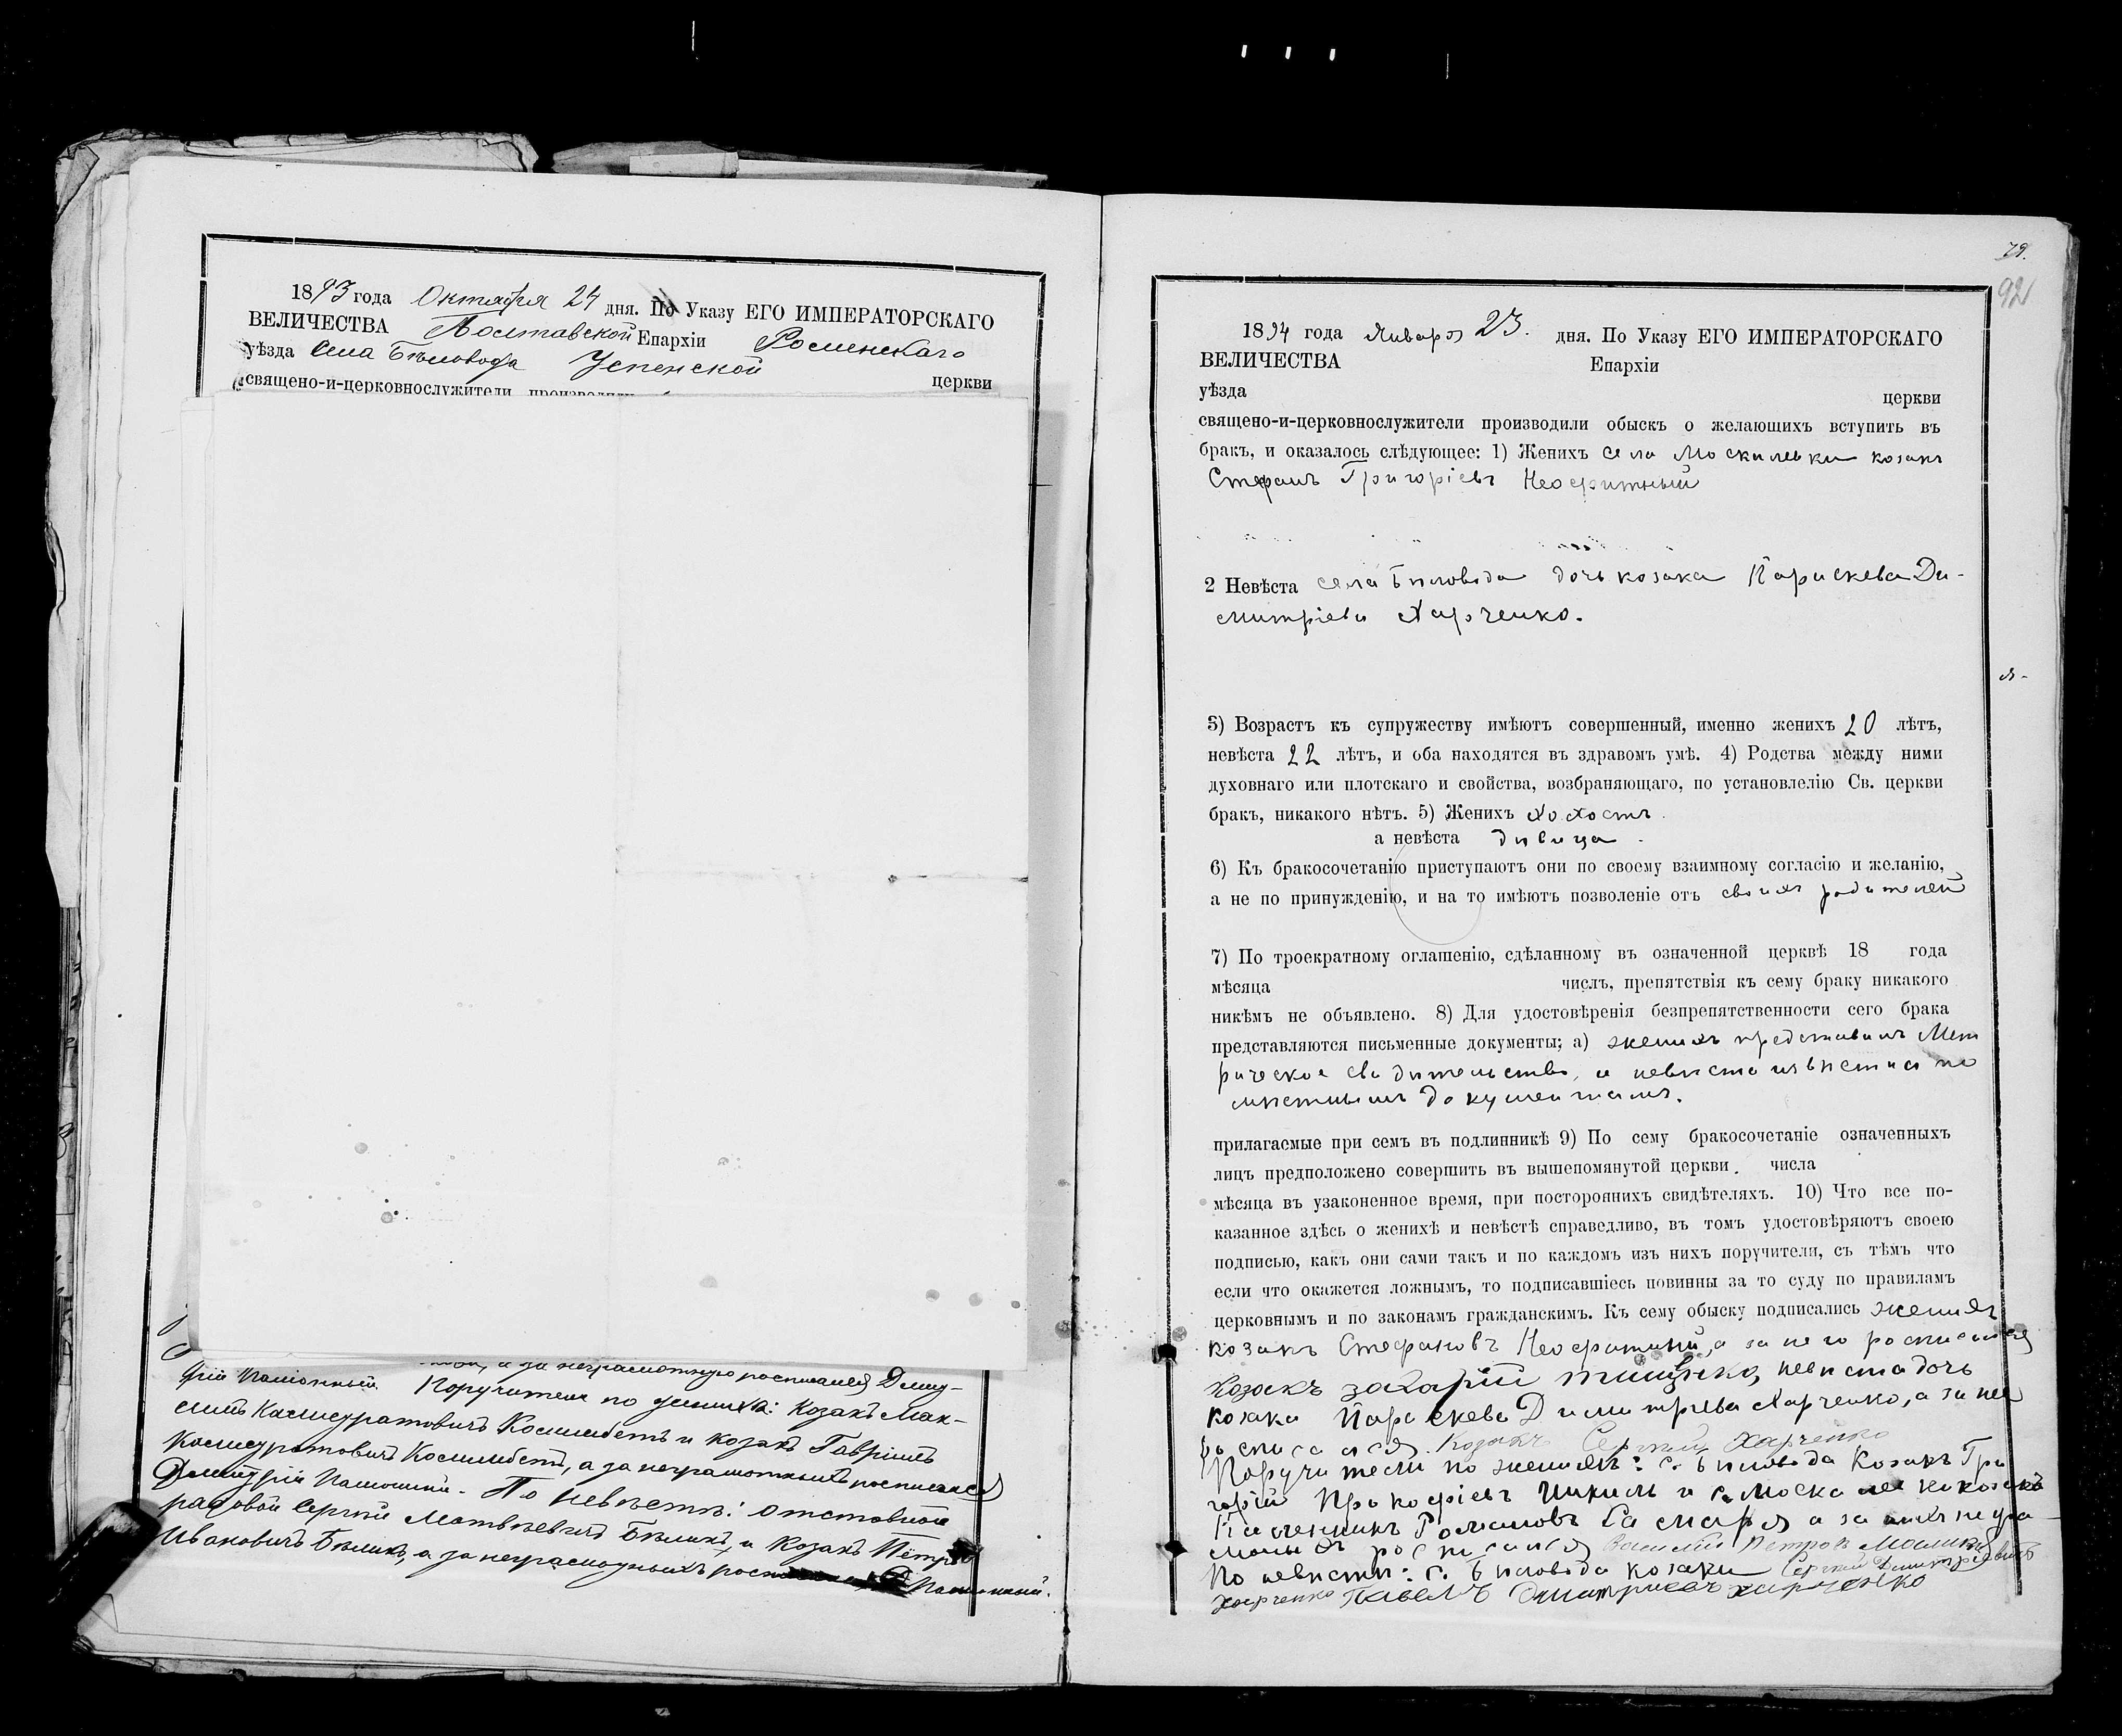 1893 года Октября 24 дня. По Указу ЕГО ИМПЕРАТОРСКАГО
ВЕЛИЧЕСТВА Полтавской Епархіи Роменскаго
уѣзда Села Бѣловода Успенской церкви
священо-и-церковнослужители производили
а за неграмотную росписался Дми-
трій Поручители по женихѣ: Козакъ Мак-
симъ Калистратовичъ и козакъ Гавріилъ
Калистратовичъ а за неграмотныхъ росписался
Димитрій По невѣстѣ: отставной
рядовой Сергій Матвѣевичъ Бѣликъ, и Козакъ Петръ
Ивановичъ Бѣликъ, а за неграмотныхъ
79.
92
1894 года Января 23. дня. По Указу ЕГО ИМПЕРАТОРСКАГО
ВЕЛИЧЕСТВА Епархіи
уѣзда церкви
священо-и-церковнослужители производили обыскъ о желающихъ вступить въ
бракъ, и оказалось слѣдующее: 1) Женихъ села Москалевки козакъ
Стефанъ Григоріевъ
2 Невѣста села Бѣловода дочь козака Параскева Ди-
митріева Харченко.
3) Возрастъ къ супружеству имѣютъ совершенный, именно женихъ 20 лѣтъ,
невѣста 22 лѣтъ, и оба находятся въ здравомъ умѣ. 4) Родства между ними
духовнаго или плотскаго и свойства, возбраняющаго, по установлелію Св. церкви
бракъ, никакого нѣтъ. 5) Женихъ холостъ.
а невѣста дѣвица.
6) Къ бракосочетанію приступаютъ они по своему взаимному согласію и желанію,
а не по принужденію, и на то имѣютъ позволеніе отъ своихъ родителей
7) По троекратному оглашенію, сдѣланному въ означенной церквѣ 18 года
мѣсяца числъ, препятствія къ сему браку никакого
никѣмъ не объявлено. 8) Для удостовѣренія безпрепятственности сего брака
представляются письменные документы; а) женихъ представилъ Мет
рическое свидѣтельство, а невѣста извѣстна по
мѣстнымъ документамъ.
прилагаемые при семъ въ подлинникѣ 9) По сему бракосочетаніе означенныхъ
лицъ предположено совершить въ вышепомянутой церкви. числа
мѣсяца въ узаконенное время, при посторонихъ свидѣтеляхъ. 10) Что все по-
казанное здѣсь о женихѣ и невѣстѣ справедливо, въ томъ удостовѣряютъ своею
подписью, какъ они сами такъ и по каждомъ изъ нихъ поручители, съ тѣмъ что
если что окажется ложнымъ, то подписавшіесь повинны за то суду по правиламъ
церковнымъ и по законамъ гражданскимъ. Къ сему обыску подписались женихъ
козакъ Стефановъ а за него росписался
Козакъ захарій невѣста дочь
козака Параскева Димитріева Харченко, а за нее
росписался. Козакъ Сергій Харченко
Поручители по женихѣ: с. Бѣловода Козакъ Гри
горій Прокофіевъ и с. Москалевки козакъ
Романовъ а за нихъ негра-
мотныхъ росписался Василій Петровъ
По невѣстѣ: с. Бѣловода козаки Сергій Димитріевичъ
Харченко Павелъ Дмитриевъ харченко